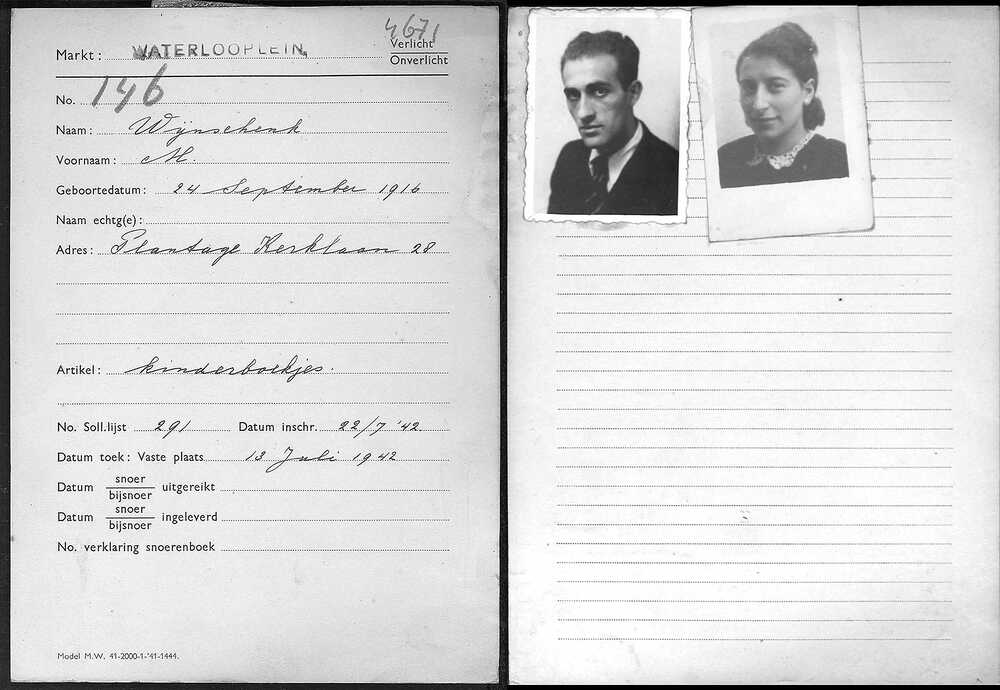 4671
Markt: WATERLOOPLEIN. Verlicht
Onverlicht
No. 146
Naam: Wijnschenk
Voornaam: M.
Geboortedatum: 24 September 1916
Naam echtg(e):
Adres: Plantage Kerklaan 28
Artikel: kinderboekjes.
No. Soll.lijst 291 Datum inschr. 22/7 '42.
Datum toek: Vaste plaats 13 Juli 1942
Datum snoer
bijsnoer uitgereikt
Datum snoer
bijsnoer ingeleverd
No. verklaring snoerenboek
Model M.W. 41-2000-1-'41-1444.